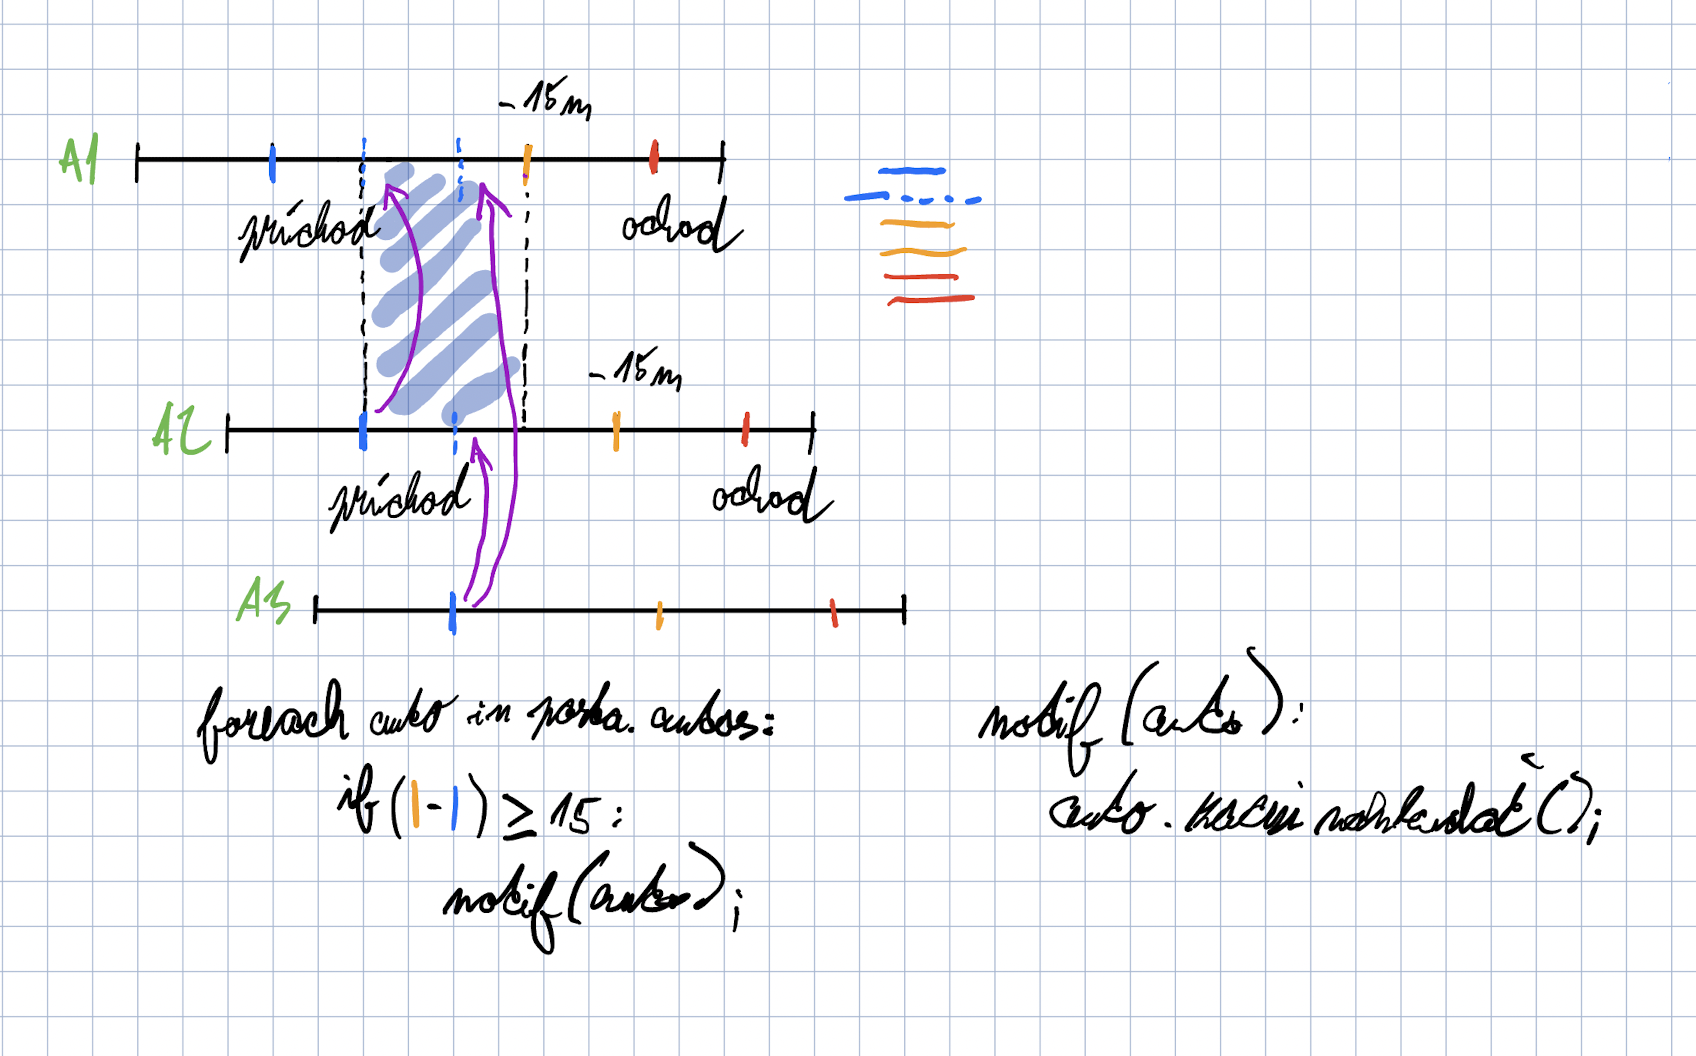 -15m
A1
príchod
odchod
-15m
A2
príchod
odchod
A3
foreach auto in posta.autos:
if (|-|) ≥ 15:
notif(auto);
notif(auto):
auto.
();